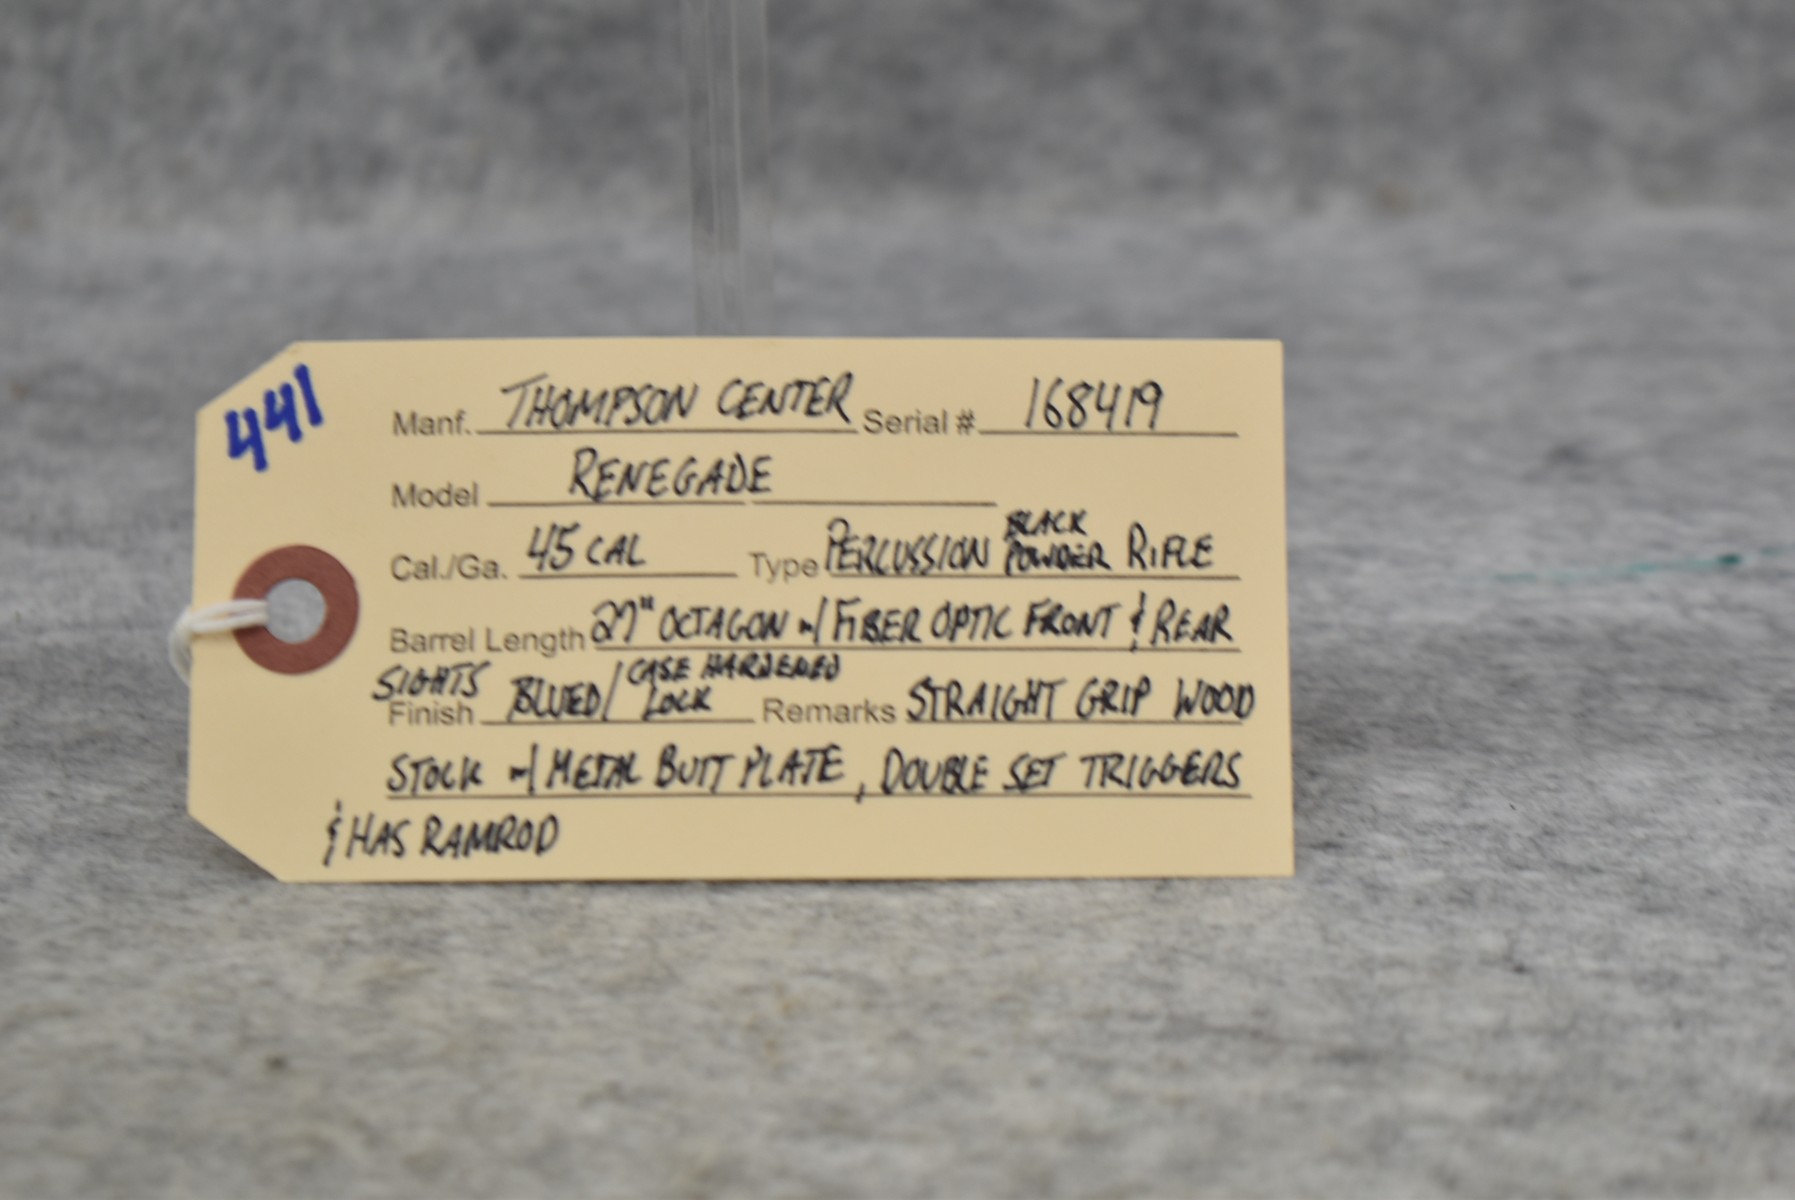 441
Manf. THOMPSON CENTER Serial # 168419
Model RENEGADE
Cal./Ga. 45 CAL Type PERCUSSION BLACK POWDER RIFLE
Barrel Length 27" OCTAGON w/ FIBER OPTIC FRONT & REAR
SIGHTS
Finish BLUED/CASE HARDENED LOCK Remarks STRAIGHT GRIP WOOD
STOCK w/ METAL BUTT PLATE, DOUBLE SET TRIGGERS
& HAS RAMROD